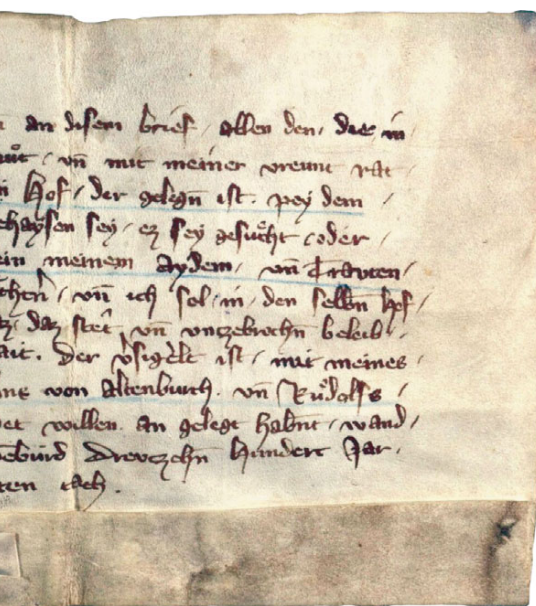 an disem brief / allen den / die in
mit / vn̄ mit meiner vreunt rat
Hof / der gelegn̄ ist . pey dem /
gehaysen sey / ez sey gesuͦcht / oder /
ein meinem aydem / vn̄ Trawten /
vn̄ ich sol / in / den selbn̄ hof /
daz stet vn̄ vnczebrochn̄ beleib /
Der v̓sigelt ist / mit meines /
von altenburch . vn̄ Ruͦdolfs /
willen . an gelegt habnt / wand /
gebürd Drevczehn̄ Hundert Jar .
tach .